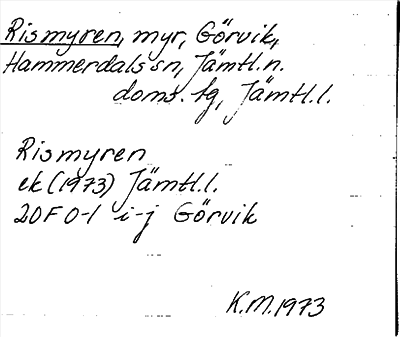 Rismyren, myr, Görvik,
Hammerdals sn, Jämtl.n.
doms. tg, Jämtl.l.
Rismyren
ek (1973) Jämtl.l.
20F 0-1 i-j Görvik
K.M. 1973